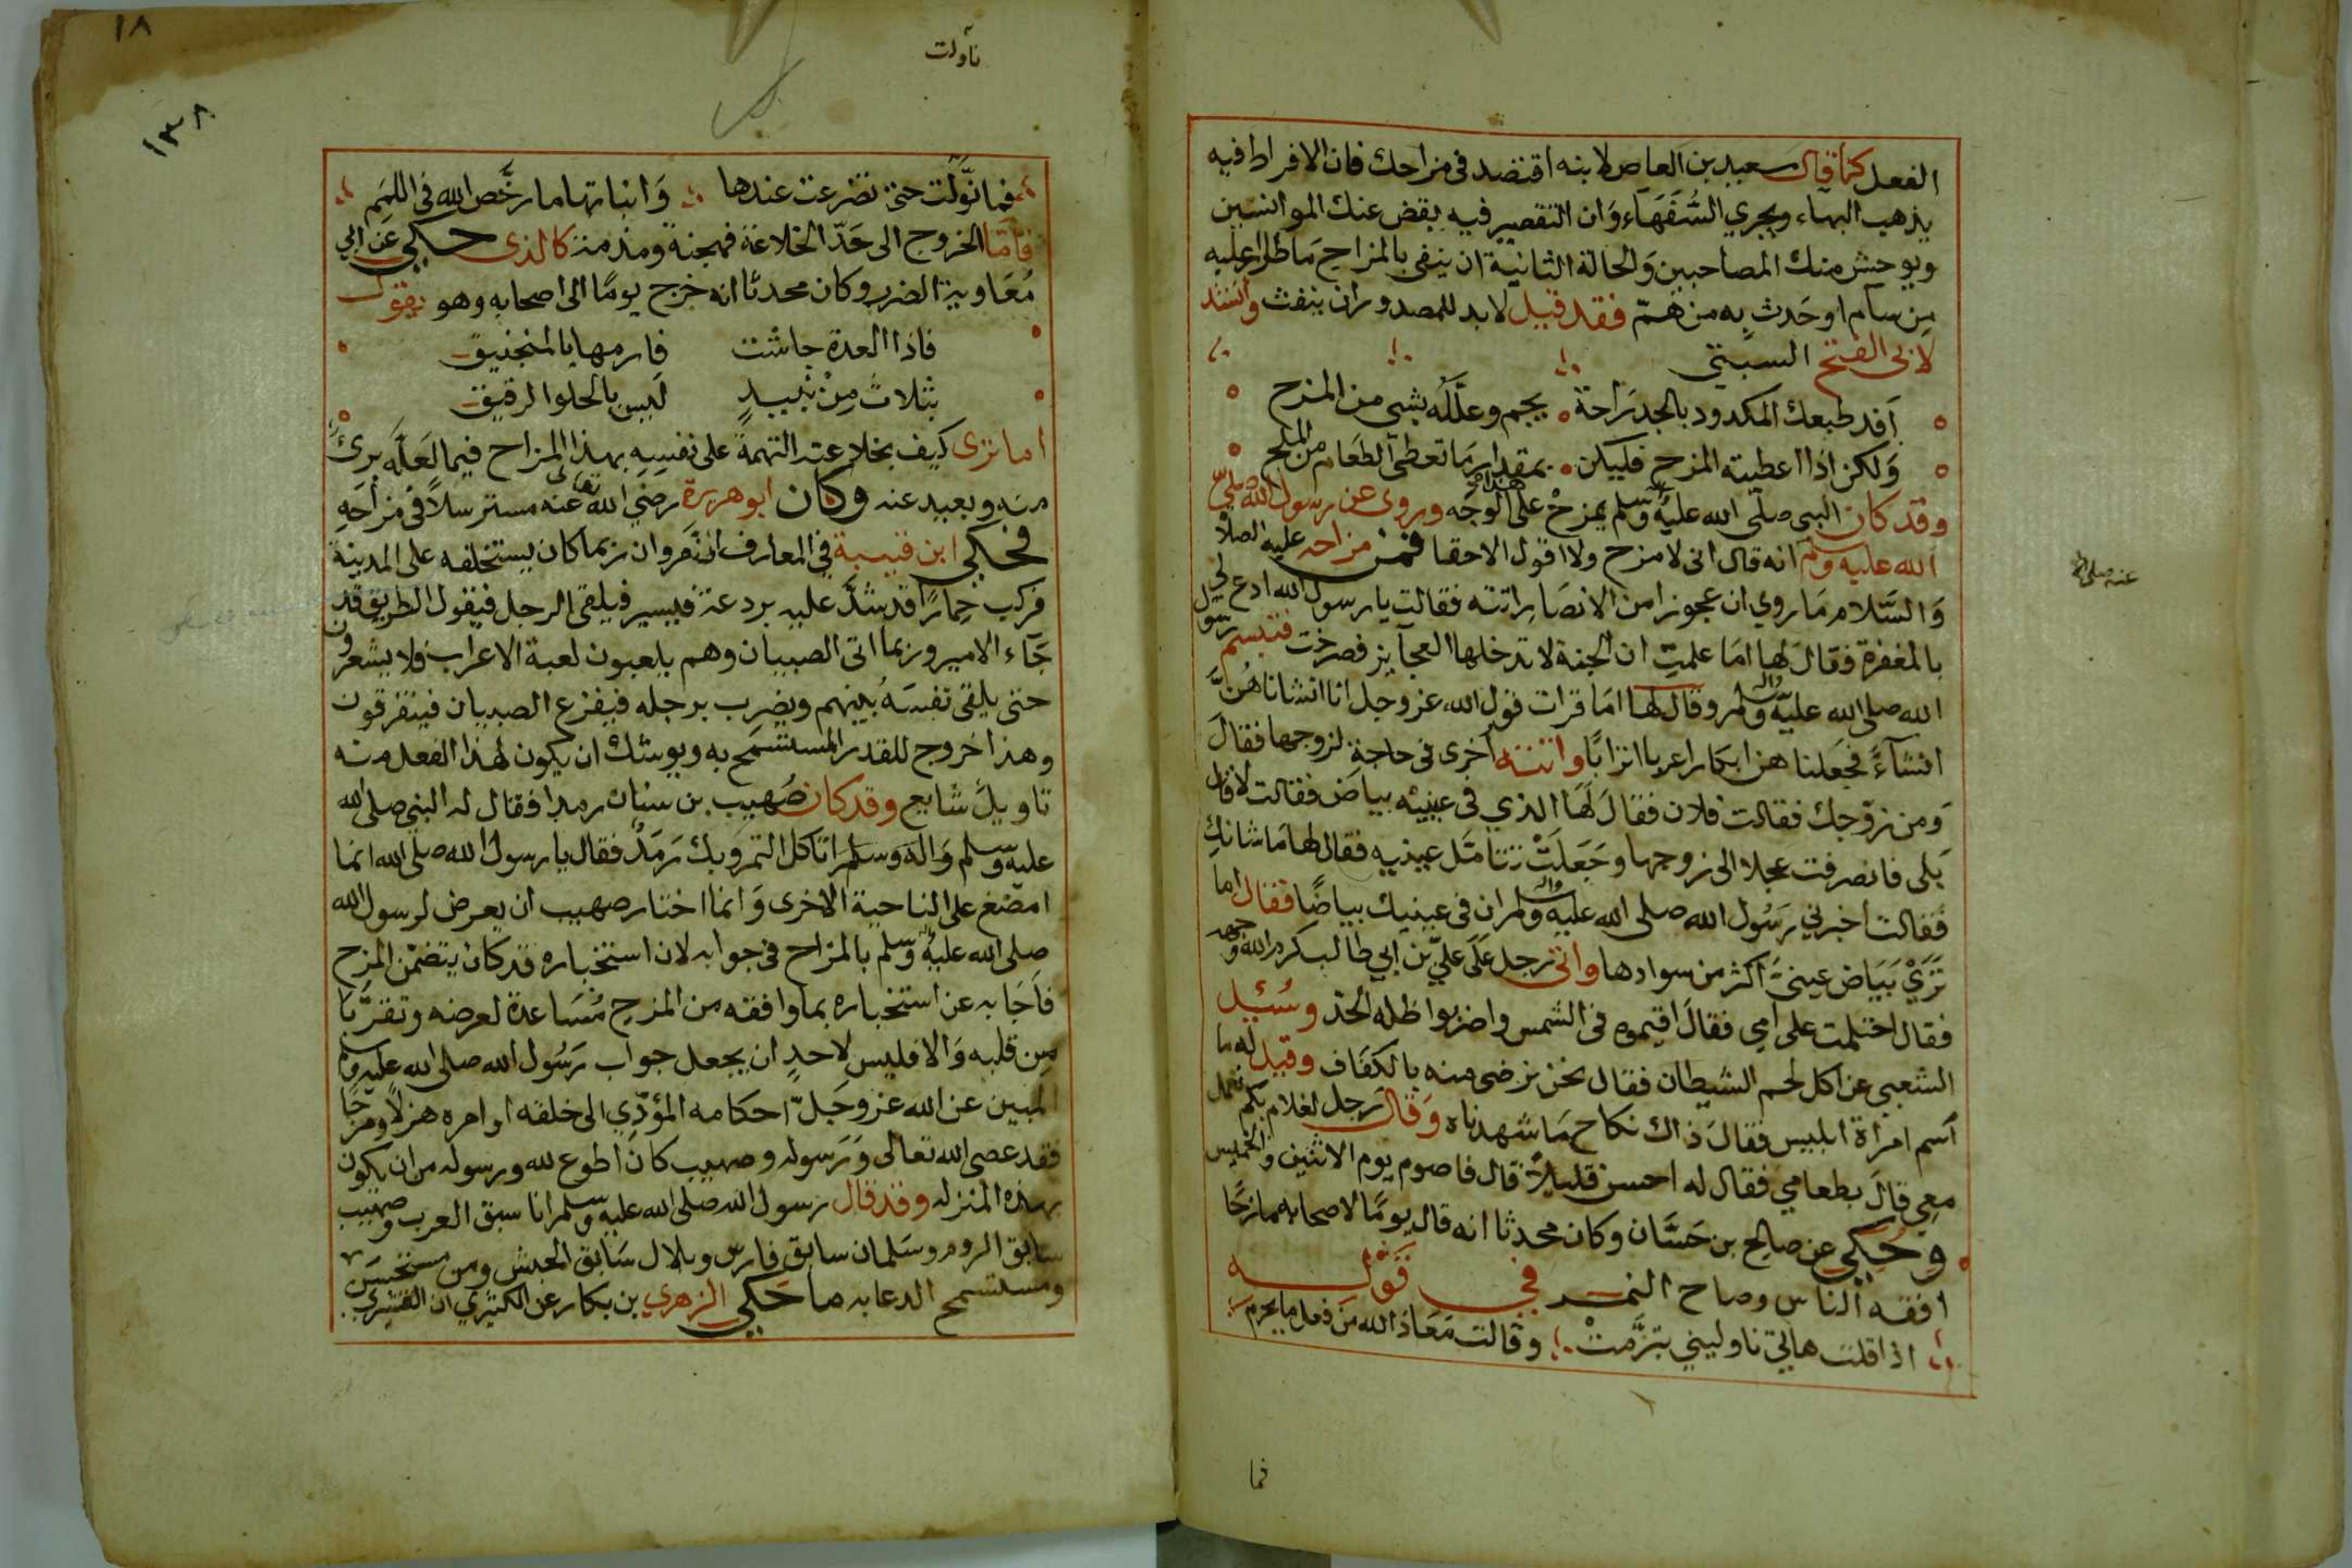 الفعل كما قال سعيد بن العاص لابنه اقتصد في مزاحك فان الافراط فيه
يذهب البهاء ويجري السُّفَهَاء وَان التقصير فيه يقض عنك الموانسين
ويوحش منك المصاحبين وَالحالة الثانية ان ينفي بالمزاح مَا طرا عليه
مِن سآم اوحَدث به من هَمّ فقد قيل لابد للمصدور ان ينفث وانشد
لابي الفتح البستي
اَفد طبعك المكدود بالجد رَاحة يجم وعلّله بشي من المزح
وَلكن اذا اعطيته المزح فليكن بمقدار مَا تعطي الطعَام من الملح
وقد كان النبي صلّى الله عليه وسلم يمزح على هذا الوجه وروى عن رسول الله صلّى
الله عليه وسلم انه قال اني لامزح ولا اقول الاحقا فمن مزاحه عليه الصلاة
وَالسَّلام مَا روي ان عجوزا من الانصَار اتته فقالت يا رسول الله ادع لي
بالمغفرة فقالَ لها امَا علمتِ ان الجنة لا تدخلها العجآيز فصرخت فتبسم رسول
الله صلى الله عليه واله وسلم وقال لها امَا قرات قول الله عز وجل انا انشاناهُنَّ
انشآءً فجَعلنا هن ابكارا عربا اترابًا واتته اخرى في حاجةٍ لزوجها فقالَ
وَمن زوّجك فقالت فلان فقالَ لهَا الذي في عينيه بياض فقالت لا فقال
بَلى فانصرفت عجلا الى زوجها وجَعَلَتْ تتامّل عينيه فقال لها مَا شانكِ
فقالت اخبرني رَسُول الله صلى الله عليه واله وسلم ان في عينيك بياضًا فقال اما
تَرَيْ بَيَاض عينيَّ اكثر من سوادها واتى رجل عَلَى عليّ بن ابي طالب كرم الله وجهه
فقال احتلمت على امي فقالَ اقيموه في الشمس واضربوا ظله الحَدّ وسُئِل
الشعبي عن اكل لحم الشيطان فقال نحن نرضى منه بالكفَاف وقيل له ما
اسم امراة ابليس فقالَ ذاك نكاح مَا شهدناه وَقالَ رجل لغلام بكم تعمل
معِي قالَ بطعامي فقال له احسن قليلاً قال فاصوم يوم الاثنين والخميس
وحُكي عن صالح بن حَسَّان وكان محدثا انه قال يومًا لاصحابه مازحًا
افقه الناس وضاح اليمن في قوله
اذا قلت هاتي ناوليني تبرَّمتْ وقالت مَعَاذ الله من فعل ما يحرم
فما
عنه صلى الله
١٨
١٣٨
ناولت
فما نوّلت حتى تضرعت عندها وَانباتها ما رخَّص الله في اللمَم
فآمّا الخروج الى حَدّ الخلاعة فهجنة ومذمة كالذى حكي عَن ابي
مُعَاوية الضرير وكان محدثا انه خرج يومًا الى اصحابه وهو يقول
فاذا المعدة جاشت فارمها بالمنجنيق
بثلاث مِنْ نبيذٍ لَيس بالحلوا الرقيق
اما ترى كيف بخلاعته التهمةً على نفسِهِ بهذا المزاح فيما لعَلّه برئ
منه وبعيد عنه وكان ابوهريرة رضي الله تعالى عنه مسترسلاً في مزاحِهِ
فحكي ابن قتيبة في المعارف ان مَروان ربما كان يستخلفه على المدينة
فركب حِمارًا قد شدَّ عليه بردعة فيسير فيلقى الرجل فيقول الطريق قد
جَآء الامير وربما اتى الصبيان وهم يلعبون لعبة الاعراب فلا يشعرون
حتى يلقي نفسَهُ بينهم ويضرب برجله فيفزع الصبيان فيتفرقون
وهذا خروج للقدر المستسمَح به ويوشك ان يكون لهذا الفعل منه
تاويلً شايع وقد كان صُهيب بن سنان رمدا فقال له النبي صلى الله
عليه وسلم وَاله وسلم اتاكل التمر وبك رَمَدٌ فقال يا رسول الله صلى الله انما
امضغ على الناحية الاخرى وَانما اختار صهيب ان يعرض لرسول الله
صلى الله عليه وسلم بالمزاح في جوابه لان استخباره قد كان يتضمن المزح
فاَجَابه عن استخباره بما وافقه من المزح مُسَاعدة لعرضه وتقرّبًا
مِن قلبه وَالا فليس لاحدٍ ان يجعل جواب رَسُول الله صلى الله عليه وسلم
المبين عن الله عز وجَلّ احكامه المؤدّي الى خلقه اوامره هزلًا ومزحًا
فقد عصى الله تعالى وَرَسوله وصهيب كانَ اطوع لله ورسوله من ان يكون
بهذه المنزله وقد قال رسول الله صلى الله عليه وسلم انا سبق العرب وصهيب
سابق الروم وسَلمان سابق فارس وبلال سَابق الحبش ومن مستحسَن
ومستسمح الدعابه ماحَكي الزهري بن بكار عن الكثيري ان القشيري